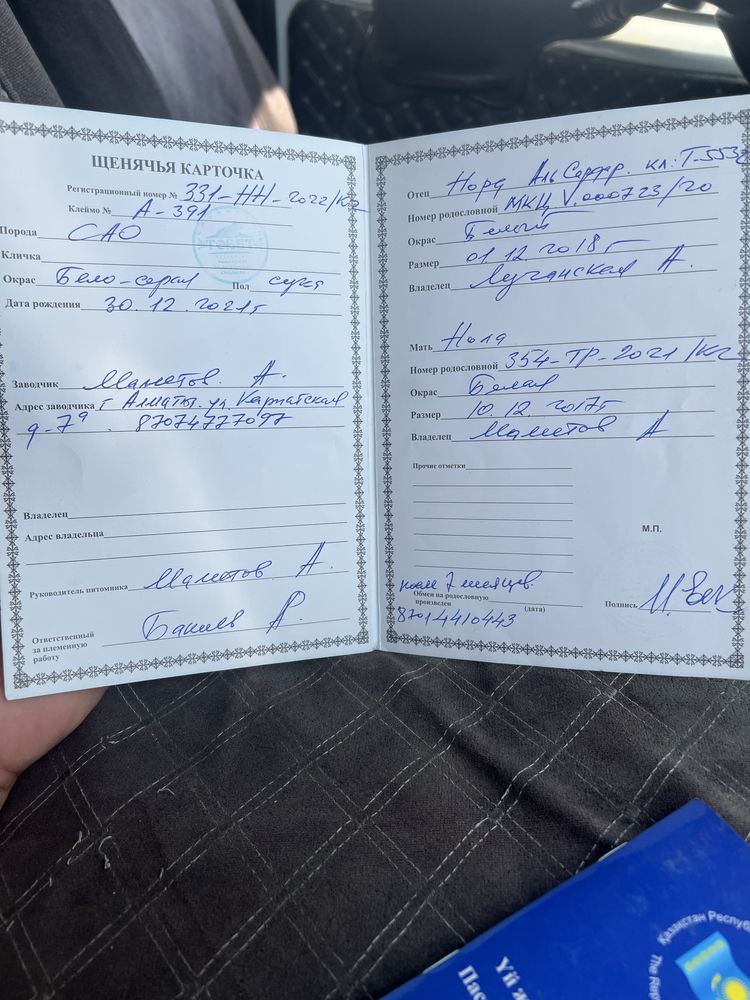 ЩЕНЯЧЬЯ КАРТОЧКА
Регистрационный номер № 331-НН-2022/KZ
Клеймо № А-391
Порода САО
Кличка
Окрас Бело-серая Пол сука
Дата рождения 30.12.2021г
Заводчик Маметов А.
Адрес заводчика г Алматы. ул Карпатская
д-7а. 87074777097
Владелец
Адрес владельца
Руководитель питомника Маметов А.
Ответственный за племенную работу Бакиев Р.
Отец Норд Аль Сардар. кл: Т-553
Номер родословной МКЦ V.000723/20
Окрас Белый
Размер 01.12.2018г
Владелец Луганская А.
Мать Нола
Номер родословной 354-ТР-2021/KZ
Окрас Белая
Размер 10.12.2017г
Владелец Маметов А
Прочие отметки
М.П.
после 7 месяцев.
Обмен на родословную произведен (дата) Подпись
87014410443
Қазақстан Респу
The Re
Үй ж
Пас